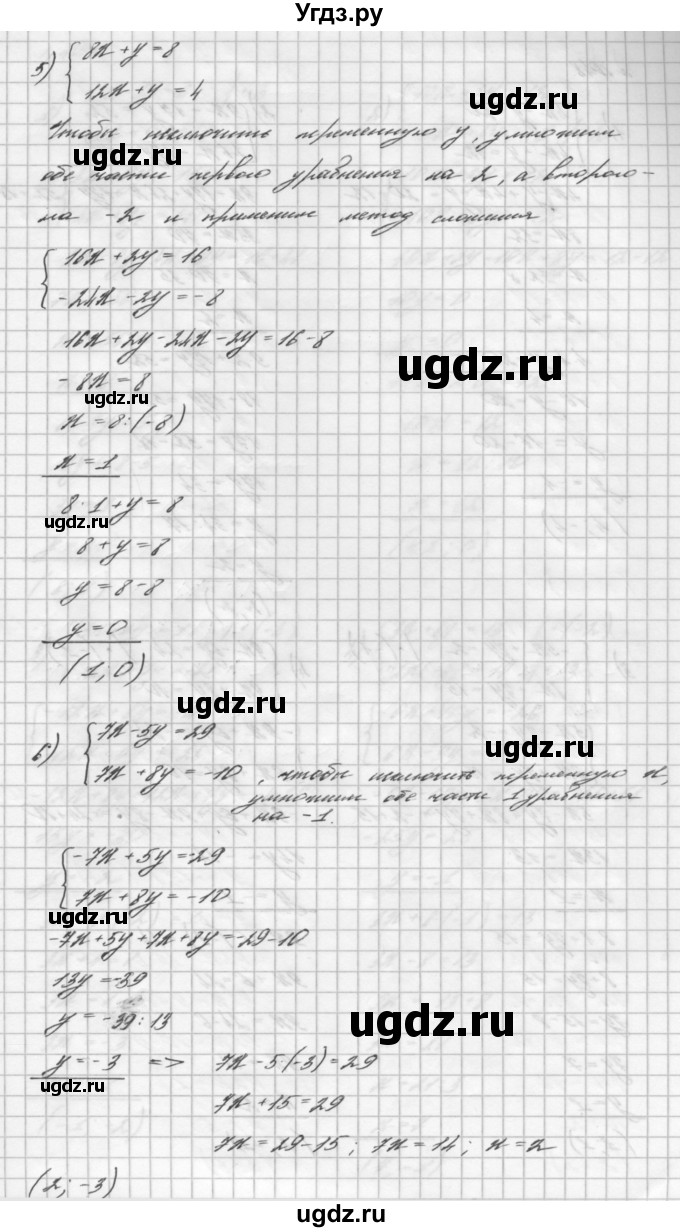 Угдз.ру
5) { 8x + y = 8
12x + y = 4
ugdz.ru
Чтобы исключить переменную y, умножим
ugdz.ru
обе части первого уравнения на 2, а второго -
на -2 и применим метод сложения
{ 16x + 2y = 16
-24x - 2y = -8
16x + 2y - 24x - 2y = 16 - 8
ugdz.ru
-8x = 8
ugdz.ru
x = 8 : (-8)
x = 1
8 · 1 + y = 8
ugdz.ru
8 + y = 8
y = 8 - 8
y = 0
(1; 0)
ugdz.ru
6) { 7x - 5y = 29
ugdz.ru
7x + 8y = -10, чтобы исключить переменную x,
умножим обе части 1 уравнения
на -1.
{ -7x + 5y = -29
7x + 8y = -10
ugdz.ru
-7x + 5y + 7x + 8y = -29 - 10
13y = -39
y = -39 : 13
ugdz.ru
y = -3 => 7x - 5(-3) = 29
ugdz.ru
7x + 15 = 29
ugdz.ru
7x = 29 - 15; 7x = 14; x = 2
(2; -3)